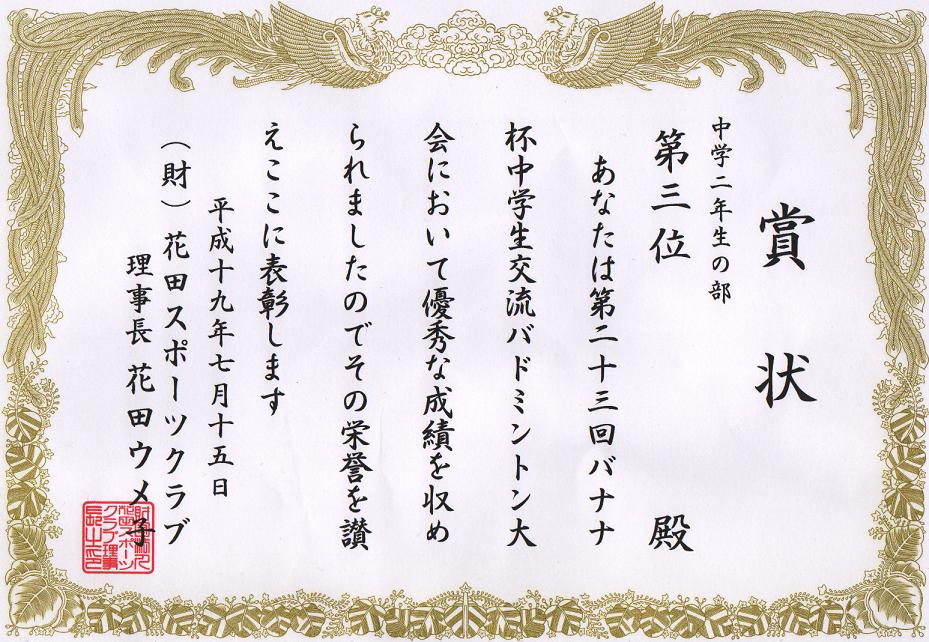 賞状
中学二年生の部
第三位 殿
あなたは第二十三回バナナ
杯中学生交流バドミントン大
会において優秀な成績を収め
られましたのでその栄誉を讃
えここに表彰します
平成十九年七月十五日
（財）花田スポーツクラブ
理事長 花田ウメ子